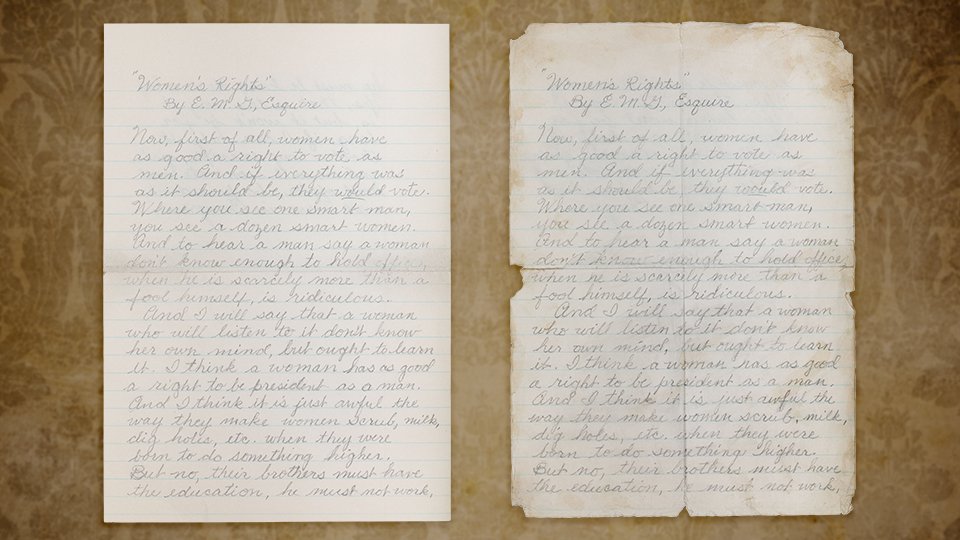 "Women's Rights"
By E. M. G, Esquire
Now, first of all, women have
as good a right to vote, as
men. And if everything was
as it should be, they would vote.
Where you see one smart man,
you see a dozen smart women.
And to hear a man say a woman
don't know enough to hold office,
when he is scarcely more than a
fool himself, is ridiculous.
And I will say that a woman
who will listen to it don't know
her own mind, but ought to learn
it. I think a woman has as good
a right to be president as a man.
And I think it is just awful the
way they make women scrub, milk,
dig holes, etc. when they were
born to do something higher.
But no, their brothers must have
the education, he must not work,
"Women's Rights"
By E. M. G, Esquire
Now, first of all, women have
as good a right to vote as
men. And if everything was
as it should be they would vote.
Where you see one smart man,
you see a dozen smart women.
And to hear a man say a woman
don't know enough to hold office,
when he is scarcely more than a
fool himself, is ridiculous.
And I will say that a woman
who will listen to it don't know
her own mind, but ought to learn
it. I think a woman has as good
a right to be president as a man.
And I think it is just awful the
way they make women scrub, milk,
dig holes, etc. when they were
born to do something higher.
But no, their brothers must have
the education, he must not work,